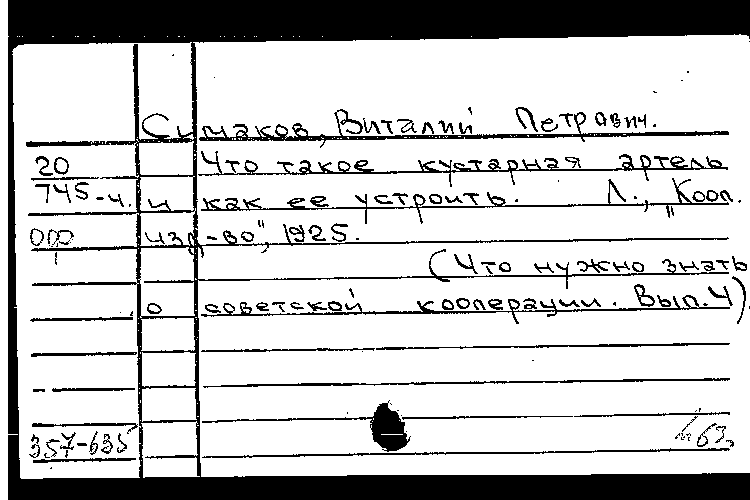 Симаков, Виталий Петрович.
20 Что такое кустарная артель
745-ч. и как ее устроить. Л., „Кооп.
000 изд-во", 1925.
(Что нужно знать
о советской кооперации. Вып.4)
357-635 63